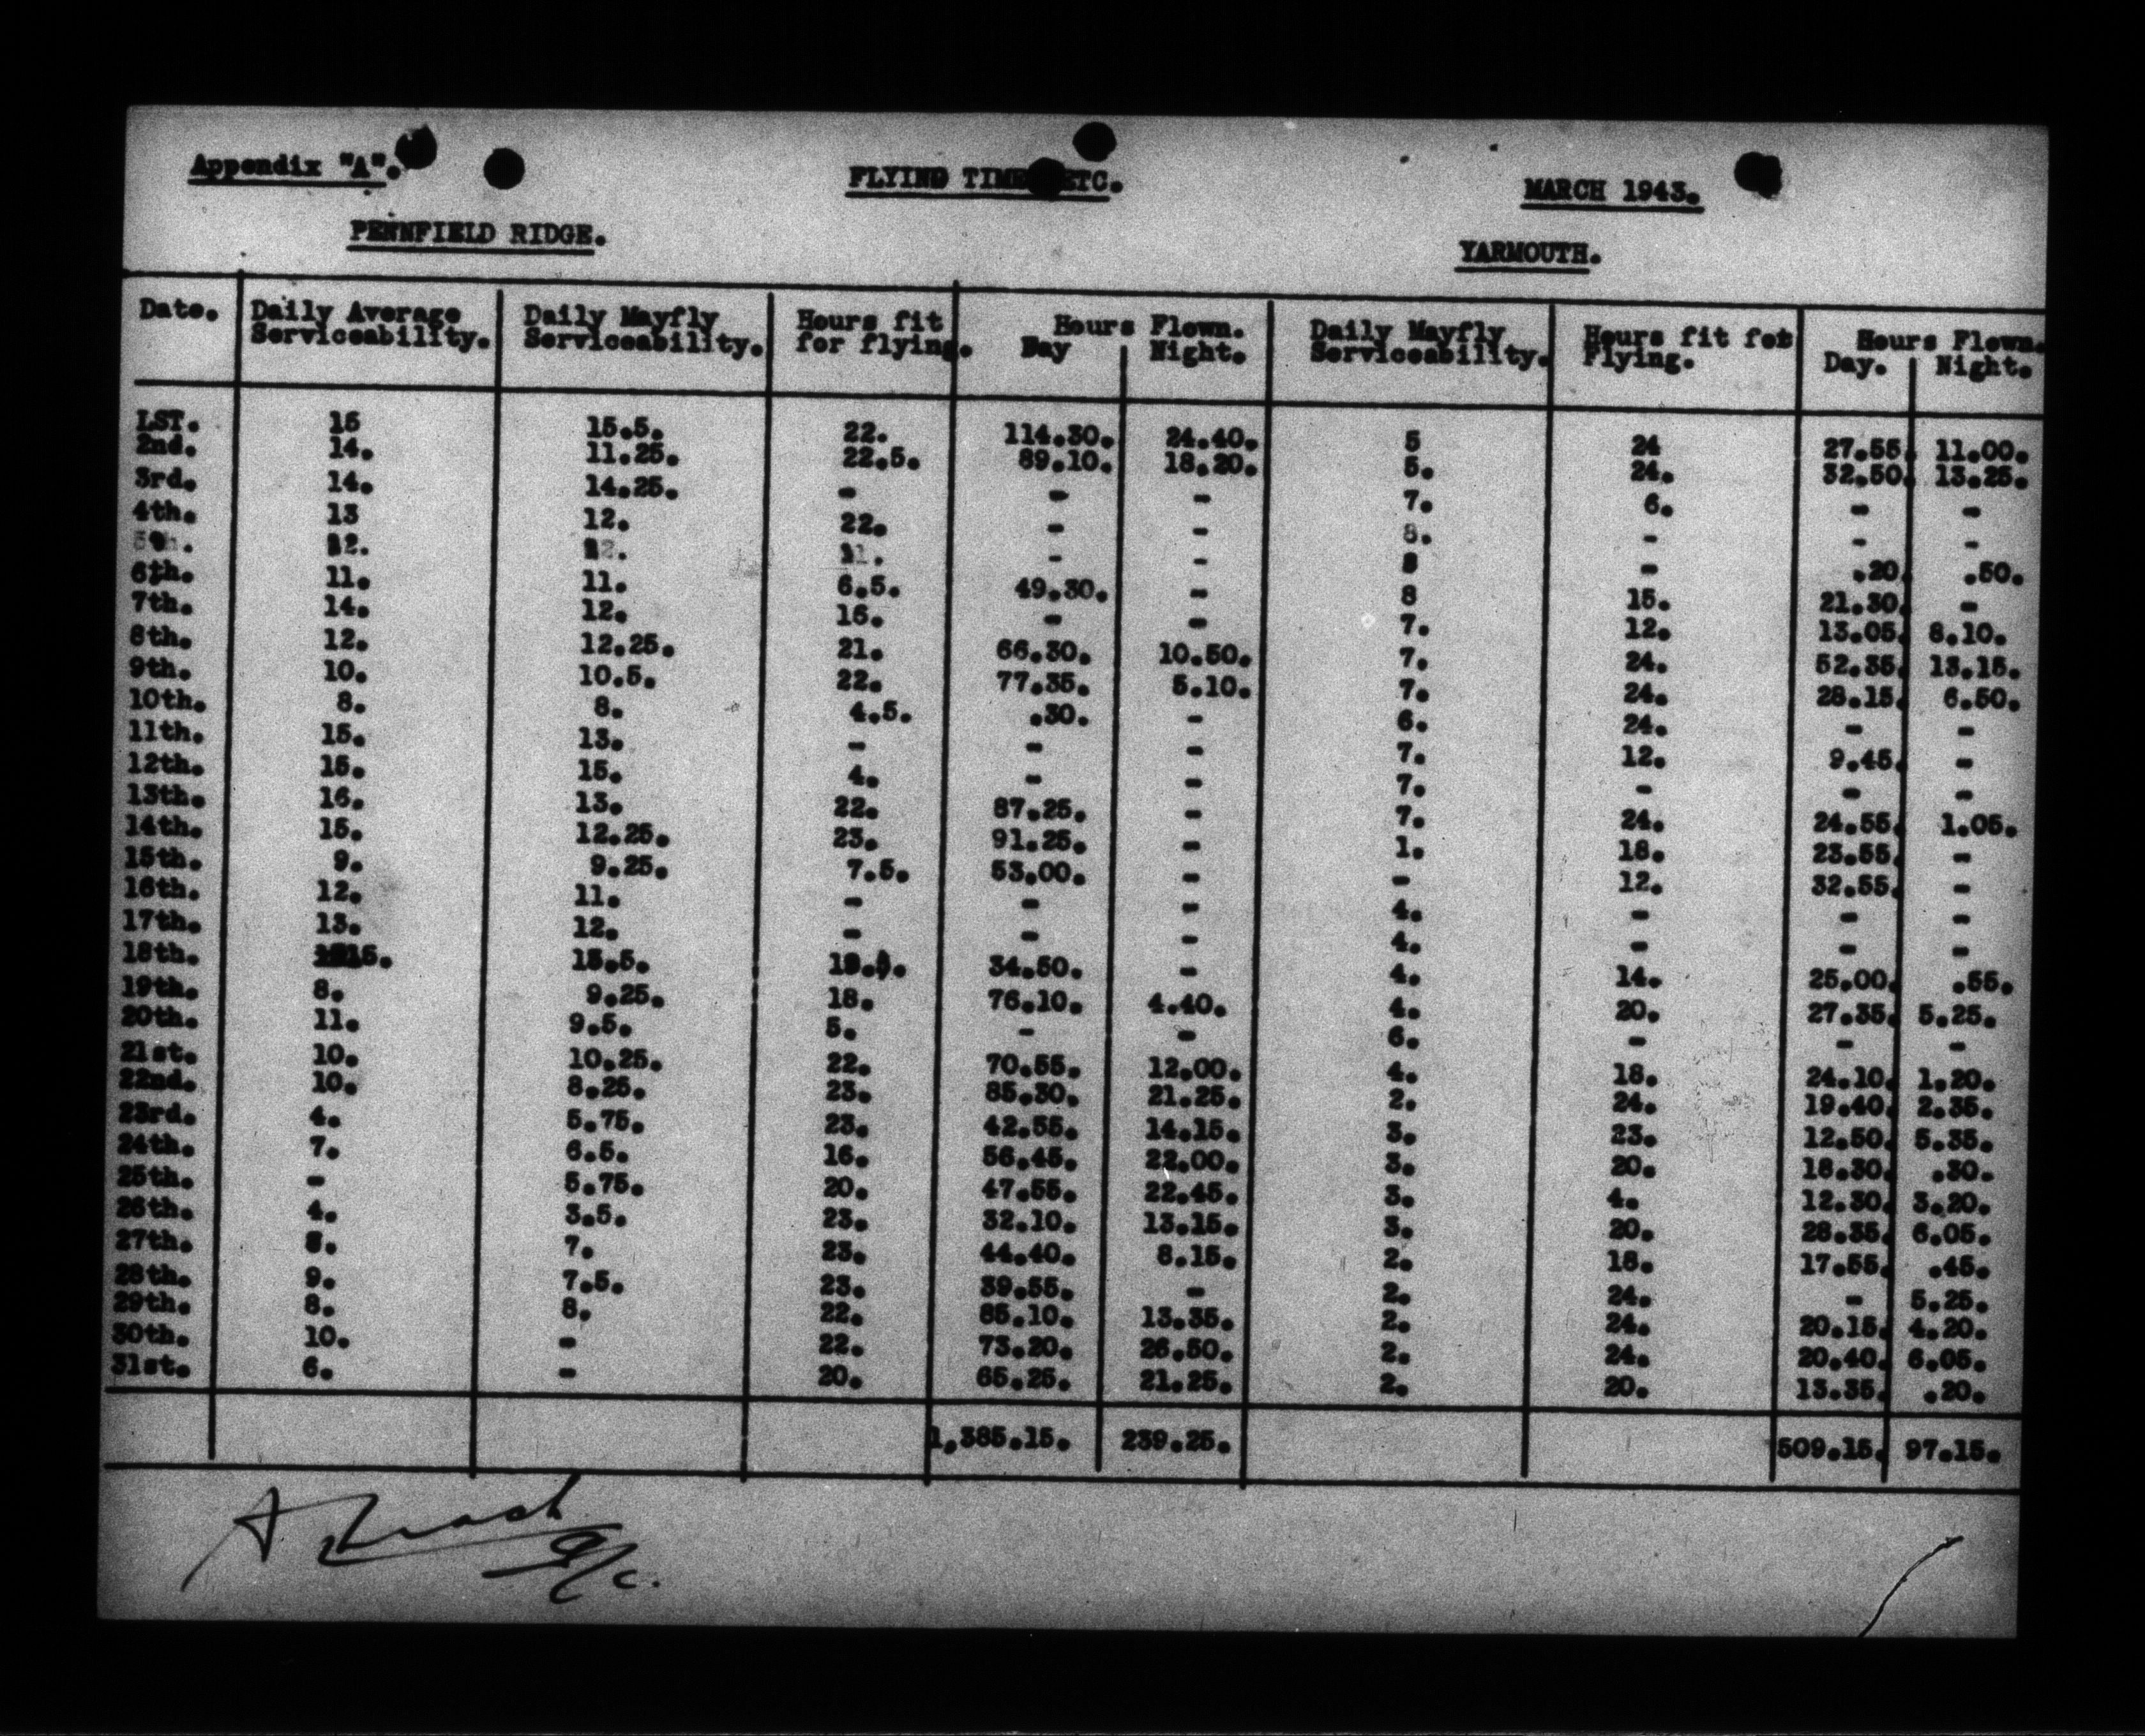 Appendix "A". FLYING TIME ETC. MARCH 1943.
PENNFIELD RIDGE. YARMOUTH.
Date. Daily Average Serviceability. Daily Mayfly Serviceability. Hours fit for flying. Hours Flown. Day Night. Daily Mayfly Serviceability. Hours fit fot Flying. Hours Flown. Day. Night.
LST. 15 15.5. 22. 114.30. 24.40. 5 24 27.55. 11.00.
2nd. 14. 11.25. 22.5. 89.10. 18.20. 5. 24. 32.50. 13.25.
3rd. 14. 14.25. - - - 7. 6. - -
4th. 13 12. 22. - - 8. - - -
5th. 12. 12. 11. - - 8 - .20. .50.
6th. 11. 11. 6.5. 49.30. - 8 15. 21.30. -
7th. 14. 12. 16. - - 7. 12. 13.05. 8.10.
8th. 12. 12.25. 21. 66.30. 10.50. 7. 24. 52.35. 13.15.
9th. 10. 10.5. 22. 77.35. 5.10. 7. 24. 28.15. 6.50.
10th. 8. 8. 4.5. .30. - 6. 24. - -
11th. 15. 13. - - - 7. 12. 9.45. -
12th. 15. 15. 4. - - 7. - - -
13th. 16. 13. 22. 87.25. - 7. 24. 24.55. 1.05.
14th. 15. 12.25. 23. 91.25. - 1. 18. 23.55. -
15th. 9. 9.25. 7.5. 53.00. - - 12. 32.55. -
16th. 12. 11. - - - 4. - - -
17th. 13. 12. - - - 4. - - -
18th. 15. 13.5. 34.50. - 4. 14. 25.00. .55.
19th. 8. 9.25. 18. 76.10. 4.40. 4. 20. 27.35. 5.25.
20th. 11. 9.5. 5. - - 6. - - -
21st. 10. 10.25. 22. 70.55. 12.00. 4. 18. 24.10. 1.20.
22nd. 10. 8.25. 23. 85.30. 21.25. 2. 24. 19.40. 2.35.
23rd. 4. 5.75. 23. 42.55. 14.15. 3. 23. 12.50. 5.35.
24th. 7. 6.5. 16. 56.45. 22.00. 3. 20. 18.30. .30.
25th. - 5.75. 20. 47.55. 22.45. 3. 4. 12.30. 3.20.
26th. 4. 3.5. 23. 32.10. 13.15. 3. 20. 28.35. 6.05.
27th. 8. 7. 23. 44.40. 8.15. 2. 18. 17.55. .45.
28th. 9. 7.5. 23. 39.55. - 2. 24. - 5.25.
29th. 8. 8. 22. 85.10. 13.35. 2. 24. 20.15. 4.20.
30th. 10. - 22. 73.20. 26.50. 2. 24. 20.40. 6.05.
31st. 6. - 20. 65.25. 21.25. 2. 20. 13.35. .20.
1,385.15. 239.25. 509.15. 97.15.